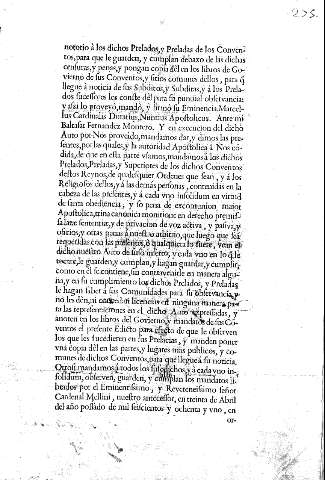 275.
notorio à los dichos Prelados, y Preladas de los Conven-
tos, para que le guarden, y cumplan debaxo de las dichas
censuras, y penas, y pongan copia dèl en los libros de Go-
vierno de sus Conventos, y sitios comunes dellos, para q̃
llegue à noticia de sus Subditos, y Subditas, y à los Prela-
dos sucessores les conste dèl para su puntual observancia:
y assi lo proveyò, mandò, y firmò su Eminencia. Marcel-
lus Cardinalis Duratius, Nuntius Apostolicus. Ante mi
Baltasar Fernandez Montero. Y en execucion del dicho
Auto por Nos proveido, mandamos dar, y dimos las pre-
sentes, por las quales, y la autoridad Apostolica à Nos cõ-
cedida, de que en esta parte usamos, mandamos à los dichos
Prelados, Preladas, y Superiores de los dichos Conventos
destos Reynos, de qualesquier Ordenes que sean, y à los
Religiosos dellos, y à las demàs personas, contenidas en la
cabeza de las presentes, y à cada uno insolidum en virtud
de santa obediencia, y so pena de excomunion mayor
Apostolica, trina canonica monitione en derecho præmis-
sa latæ sententiæ, y de privacion de voz activa, y passiva, y
oficios, y otras penas à nuestro arbitrio, que luego que seã
requeridos con las presentes, ò qualquiera lo fuere, vean el
dicho nuestro Auto de suso inserto, y cada uno en lo q̃ le
tocare, le guarden, y cumplan, y hagan guardar, y cumplir,
como en èl se contiene, sin contravenirle en manera algu-
na, y en su cumplimiento los dichos Prelados, y Preladas
le hagan saber à sus Comunidades para su observancia, y
no los dèn, ni concedan licencias en ninguna manera pa-
ra las representaciones en el dicho Auto expressadas, y
anoten en los libros del Govierno, y mandatos de sus Co-
ventos el presente Edicto para efecto de que le observen
los que les sucedieren en sus Prelacias, y manden poner
vna copia dèl en las partes, y lugares mas publicos, y co-
munes de dichos Conventos, para que llegue à su noticia.
Otrosi, mandamos à todos los susodichos, y à cada vno in-
solidum, observen, guarden, y cumplan los mandatos li-
brados por el Eminentissimo, y Reverendissimo señor
Cardenal Mellini, nuestro antecessor, en treinta de Abril
del año passado de mil seiscientos y ochenta y vno, en
or-